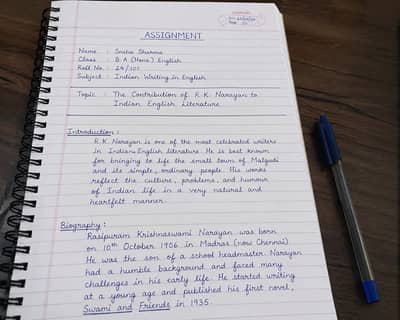 ASSIGNMENT
Name : Sneha Sharma
Class : B.A (Hons) English
Roll No. : 24/101
Subject : Indian Writing in English
Topic : The Contribution of R.K. Narayan to
Indian English Literature
Introduction :
R.K. Narayan is one of the most celebrated writers
in Indian English literature. He is best known
for bringing to life the small town of Malgudi
and its simple, ordinary people. His works
reflect the culture, problems, and humour
of Indian life in a very natural and
heartfelt manner.
Biography :
Rasipuram Krishnaswami Narayan was born
on 10th October 1906 in Madras (now Chennai).
He was the son of a school headmaster. Narayan
had a humble background and faced many
challenges in his early life. He started writing
at a young age and published his first novel,
Swami and Friends in 1935.